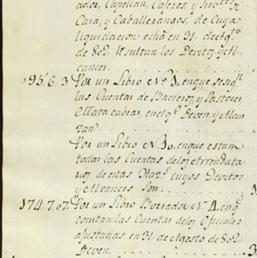 ador, Capellan, Caseros, y Sirv.tes
Casa, y Caballerangos, de Cuya
liquidacion echa en 31. de
de 802. Resultan los Devitos y Al
cances.
195,, 6. 3 Por un Libro N.º 3. enque
las Cuentas de Baqueros, y Pastores
y alcan
zan.
Por un Libro N.º enque estan
todas las Cuentas delos Arrendata
rios de estas Haz.das cuyos Devitos
y Alcances son
174,, 7. 0 7 Por un Libro Borrador N.º 4. enq.e
constan las Cuentas delos Oficiales
ajustadas en 31 de Agosto de 802.
Deven